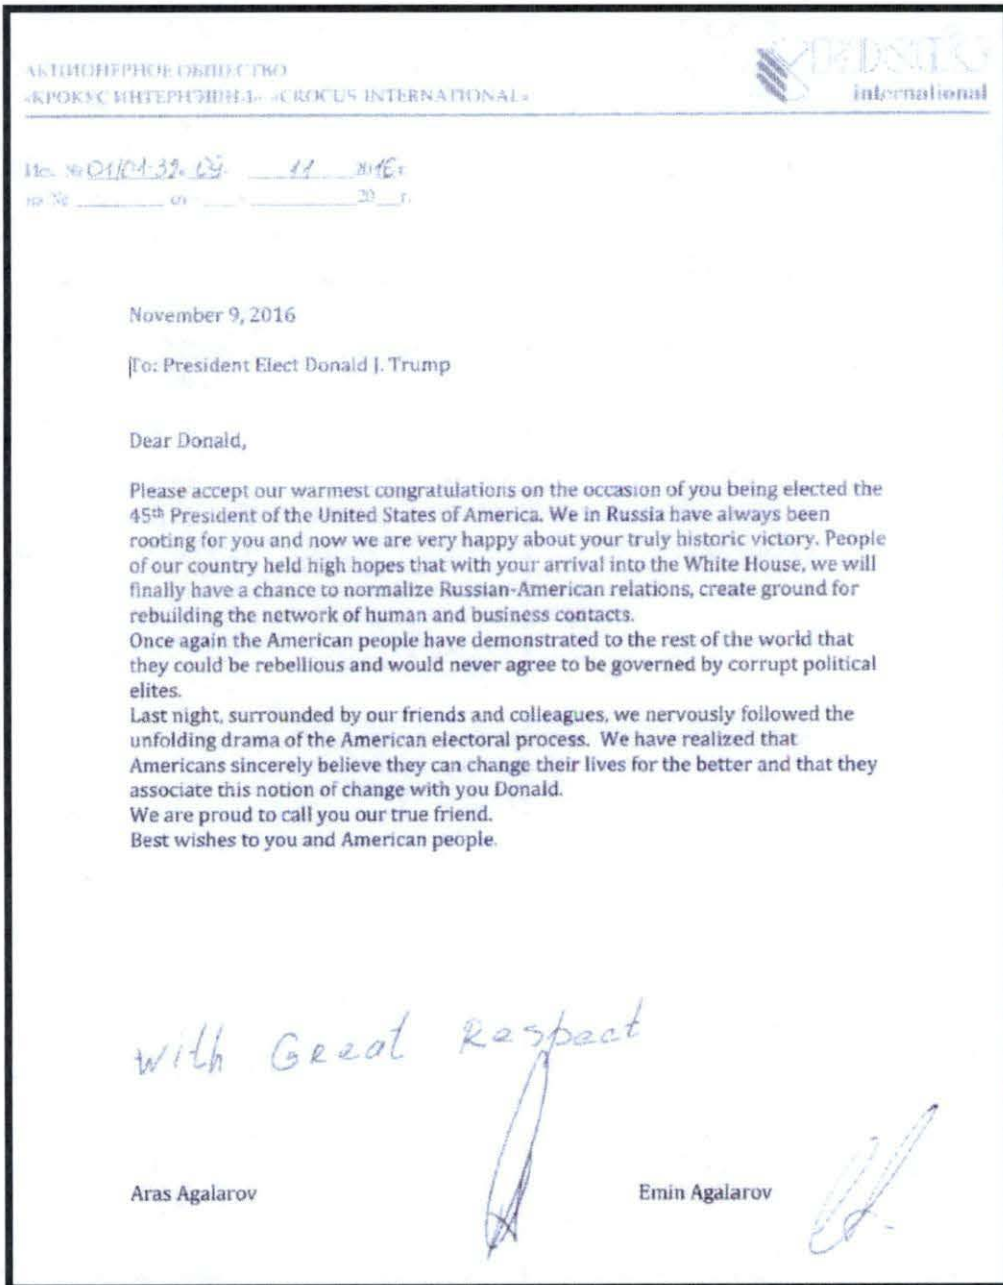 АКЦИОНЕРНОЕ ОБЩЕСТВО
«КРОКУС ИНТЕРНЭШНЛ» «CROCUS INTERNATIONAL»
CROCUS
international
Исх. № 01/01-32 09 11 2016 г.
на № от 20 г.
November 9, 2016
To: President Elect Donald J. Trump
Dear Donald,
Please accept our warmest congratulations on the occasion of you being elected the
45th President of the United States of America. We in Russia have always been
rooting for you and now we are very happy about your truly historic victory. People
of our country held high hopes that with your arrival into the White House, we will
finally have a chance to normalize Russian-American relations, create ground for
rebuilding the network of human and business contacts.
Once again the American people have demonstrated to the rest of the world that
they could be rebellious and would never agree to be governed by corrupt political
elites.
Last night, surrounded by our friends and colleagues, we nervously followed the
unfolding drama of the American electoral process. We have realized that
Americans sincerely believe they can change their lives for the better and that they
associate this notion of change with you Donald.
We are proud to call you our true friend.
Best wishes to you and American people.
With Great Respect
Aras Agalarov Emin Agalarov